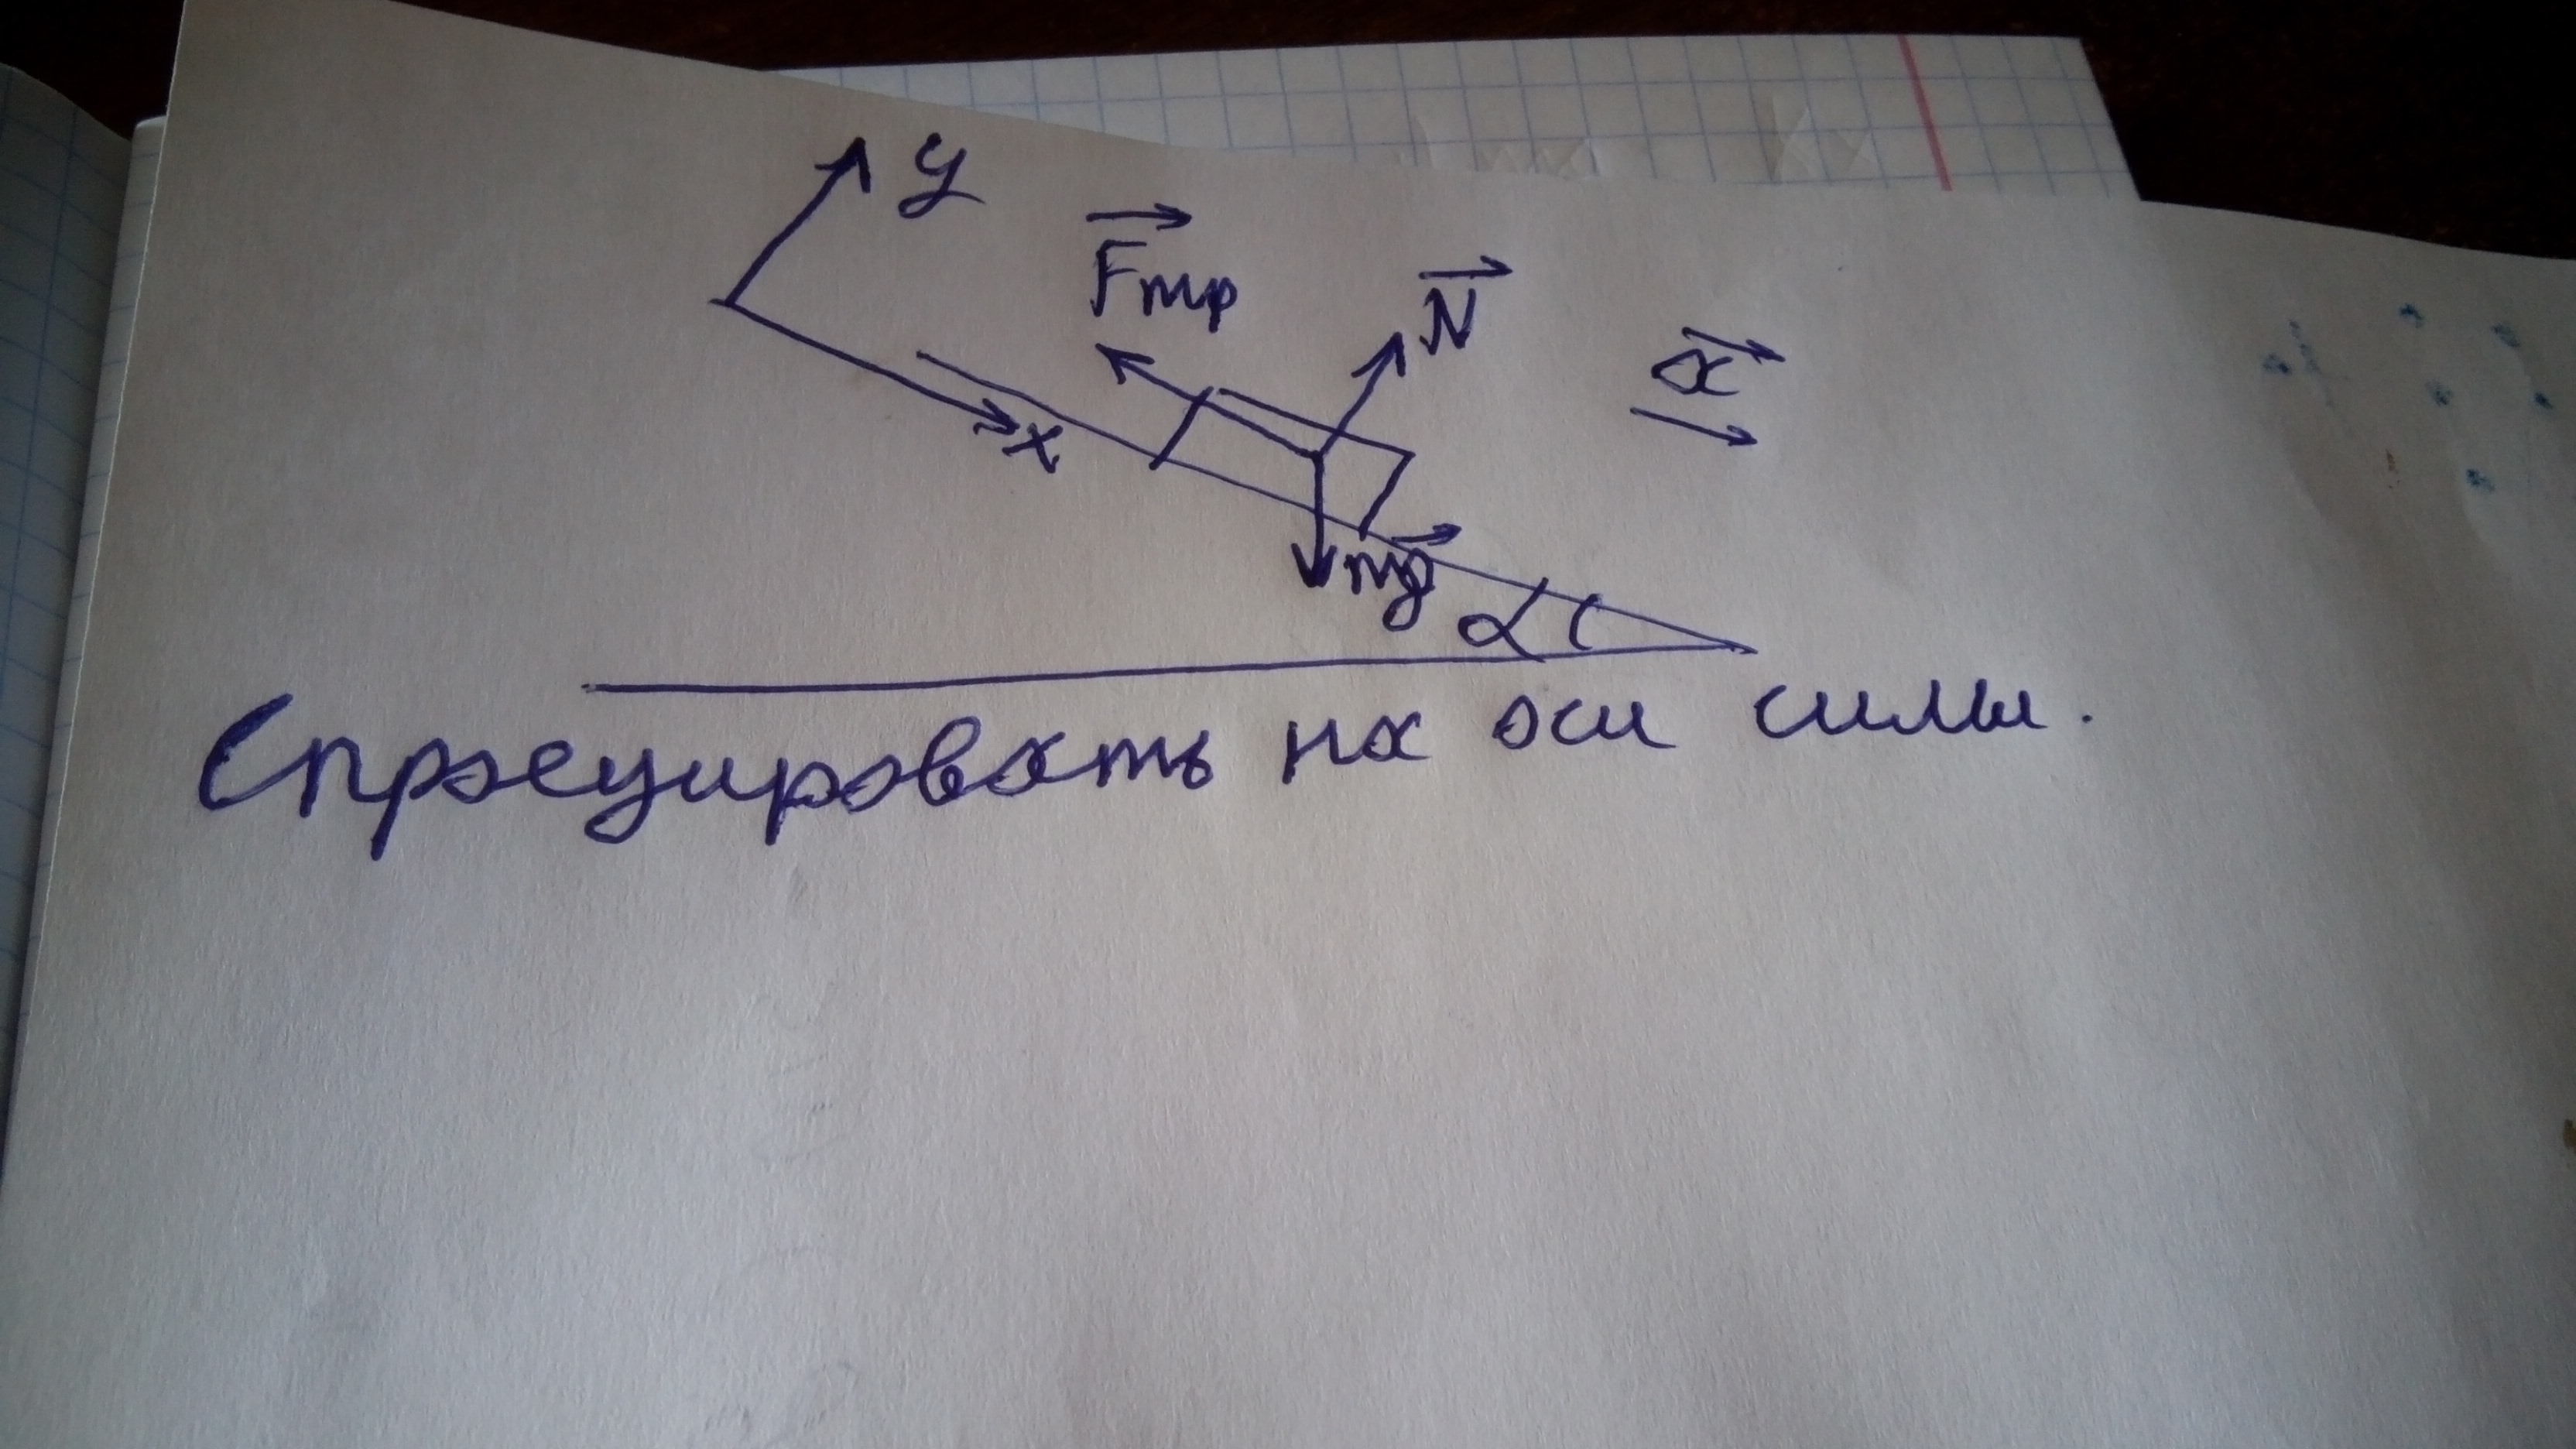 y
Fтр
N
a
x
mg
α
Спроецировать на оси силы.